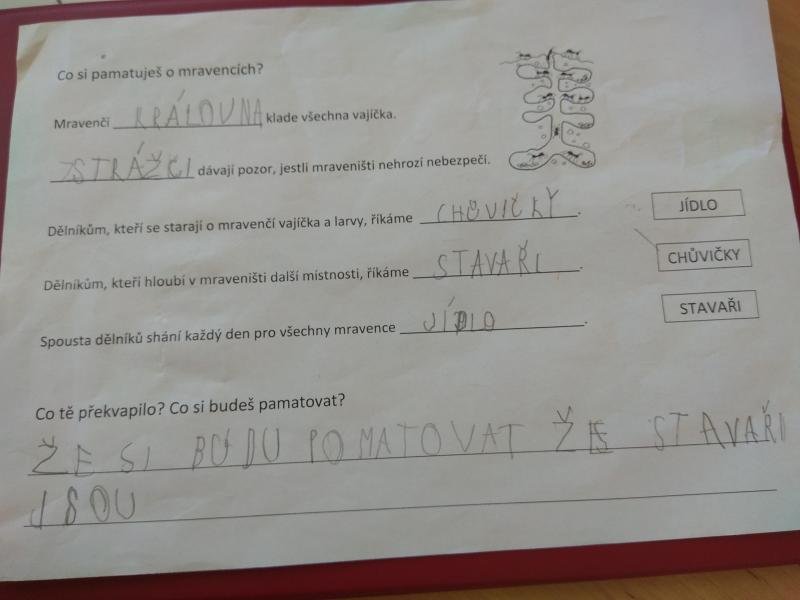 Co si pamatuješ o mravencích?
Mravenčí KRÁLOVNA klade všechna vajíčka.
STRÁŽCI dávají pozor, jestli mraveništi nehrozí nebezpečí.
Dělníkům, kteří se starají o mravenčí vajíčka a larvy, říkáme CHŮVIČKY.
JÍDLO
Dělníkům, kteří hloubí v mraveništi další místnosti, říkáme STAVAŘI.
CHŮVIČKY
Spousta dělníků shání každý den pro všechny mravence JÍDLO.
STAVAŘI
Co tě překvapilo? Co si budeš pamatovat?
ŽE SI BUDU POMATOVAT ŽE STAVAŘI
JSOU